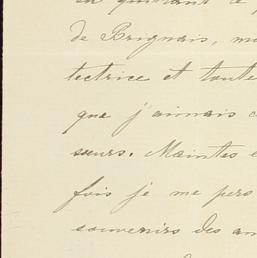 en quittant ce
de Brignais, m
tectrice et toute
que j'aimais c
sœurs. Maintes
fois je me pers
souvenirs des an